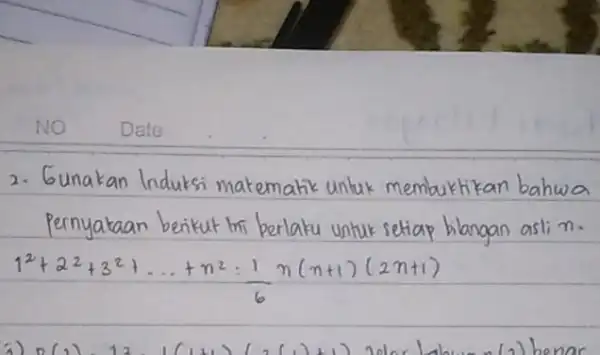 NO Date
2. Gunakan Induksi matematik untuk membuktikan bahwa
Pernyataan berikut ini berlaku untuk setiap bilangan asli n.
1² + 2² + 3² + ... + n² = 1/6 n (n+1) (2n+1)